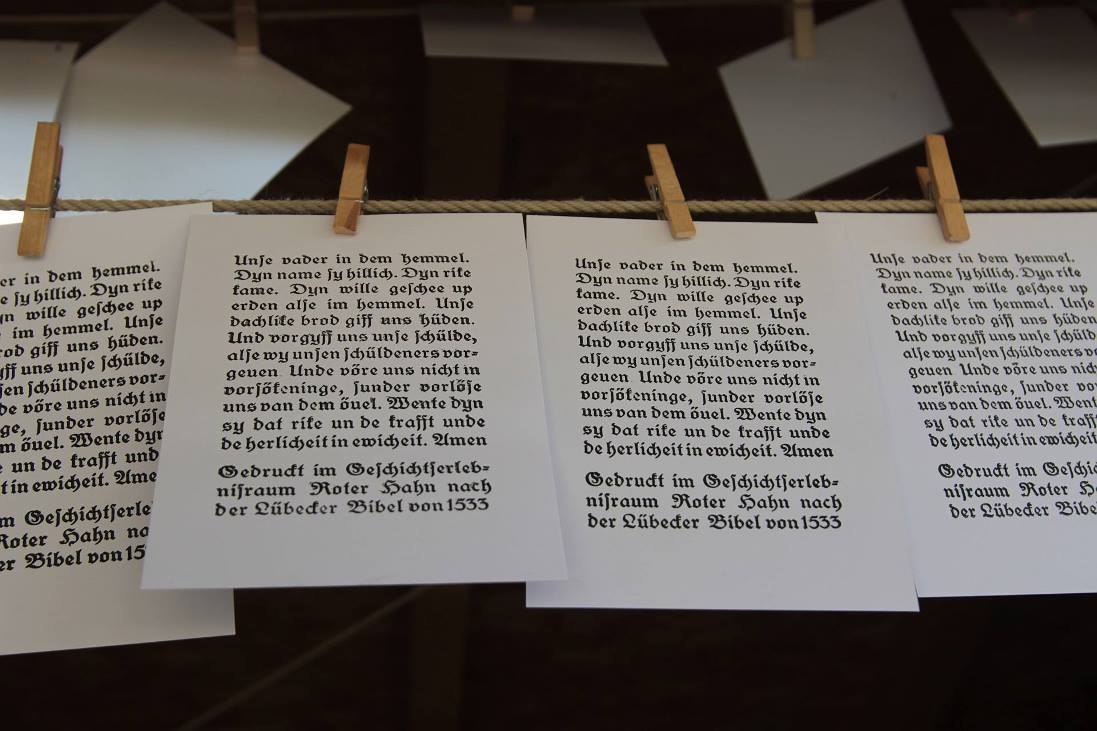 er in dem hemmel.
e ſy hillich. Dyn rike
yn wille geſchee up
im hemmel. Unſe
rod giff uns hüden.
yff uns unſe ſchülde,
ſen ſchüldeners vor=
de vöre uns nicht in
ge, ſunder vorlöſe
m öuel. Wente dyn
un de krafft und
t in ewicheit. Ame
m Geſchichtſerle
Roter Hahn na
er Bibel von 15
Unſe vader in dem hemmel.
Dyn name ſy hillich. Dyn rike
kame. Dyn wille geſchee up
erden alſe im hemmel. Unſe
dachlike brod giff uns hüden.
Und vorgyff uns unſe ſchülde,
alſe wy unſen ſchüldeners vor=
geuen. Unde vöre uns nicht in
vorſökeninge, ſunder vorlöſe
uns van dem öuel. Wente dyn
sy dat rike un de krafft unde
de herlicheit in ewicheit. Amen
Gedruckt im Geſchichtſerleb=
niſraum Roter Hahn nach
der Lübecker Bibel von 1533
Unſe vader in dem hemmel.
Dyn name ſy hillich. Dyn rike
kame. Dyn wille geſchee up
erden alſe im hemmel. Unſe
dachlike brod giff uns hüden.
Und vorgyff uns unſe ſchülde,
alſe wy unſen ſchüldeners vor=
geuen. Unde vöre uns nicht in
vorſökeninge, ſunder vorlöſe
uns van dem öuel. Wente dyn
sy dat rike un de krafft unde
de herlicheit in ewicheit. Amen
Gedruckt im Geſchichtſerleb=
niſraum Roter Hahn nach
der Lübecker Bibel von 1533
Unſe vader in dem hemmel.
Dyn name ſy hillich. Dyn rike
kame. Dyn wille geſchee up
erden alſe im hemmel. Unſe
dachlike brod giff uns hüden.
Und vorgyff uns unſe ſchüld
alſe wy unſen ſchüldeners vo
geuen. Unde vöre uns nicht
vorſökeninge, ſunder vor
uns van dem öuel. Went
sy dat rike un de kraff
de herlicheit in ewicheit
Gedruckt im Geſchi
niſraum Roter H
der Lübecker Bibe